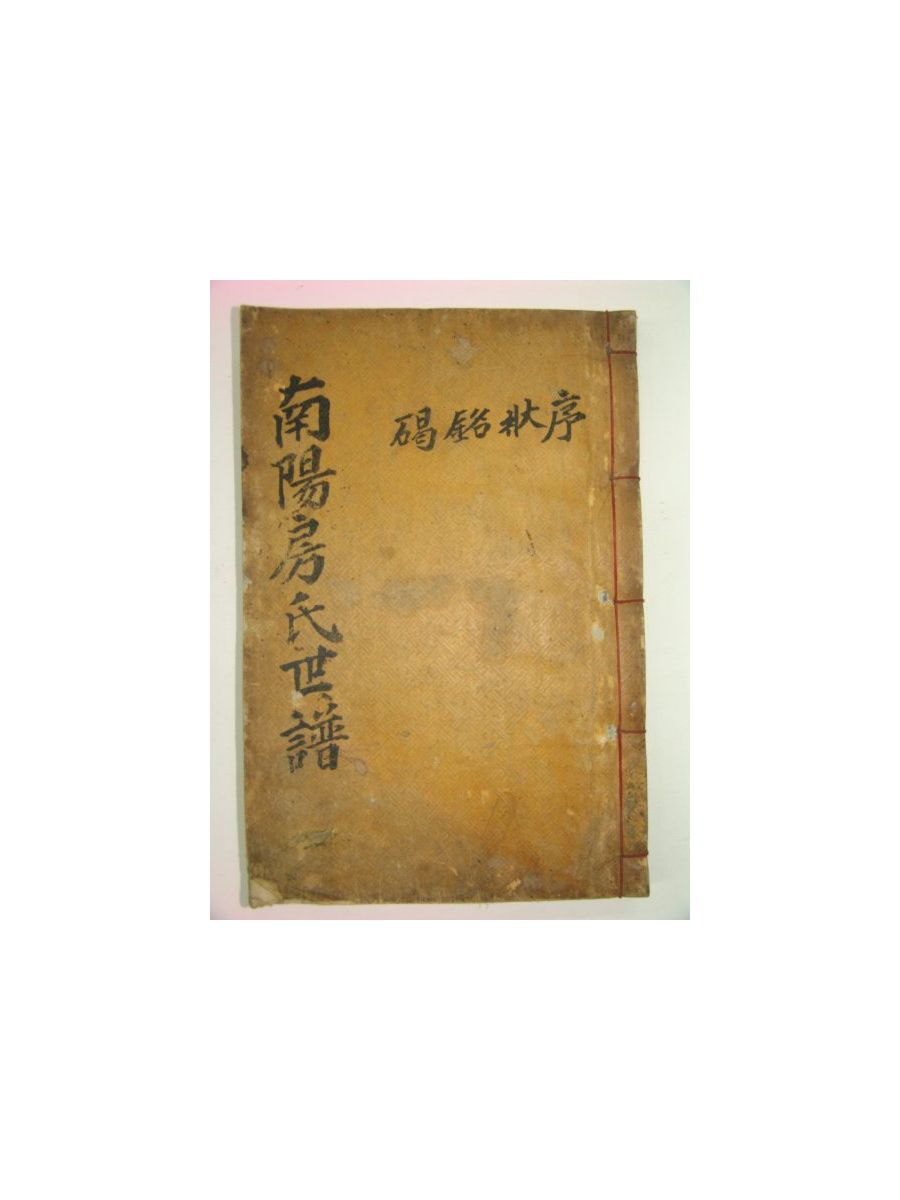 序狀銘碣
南陽房氏世譜